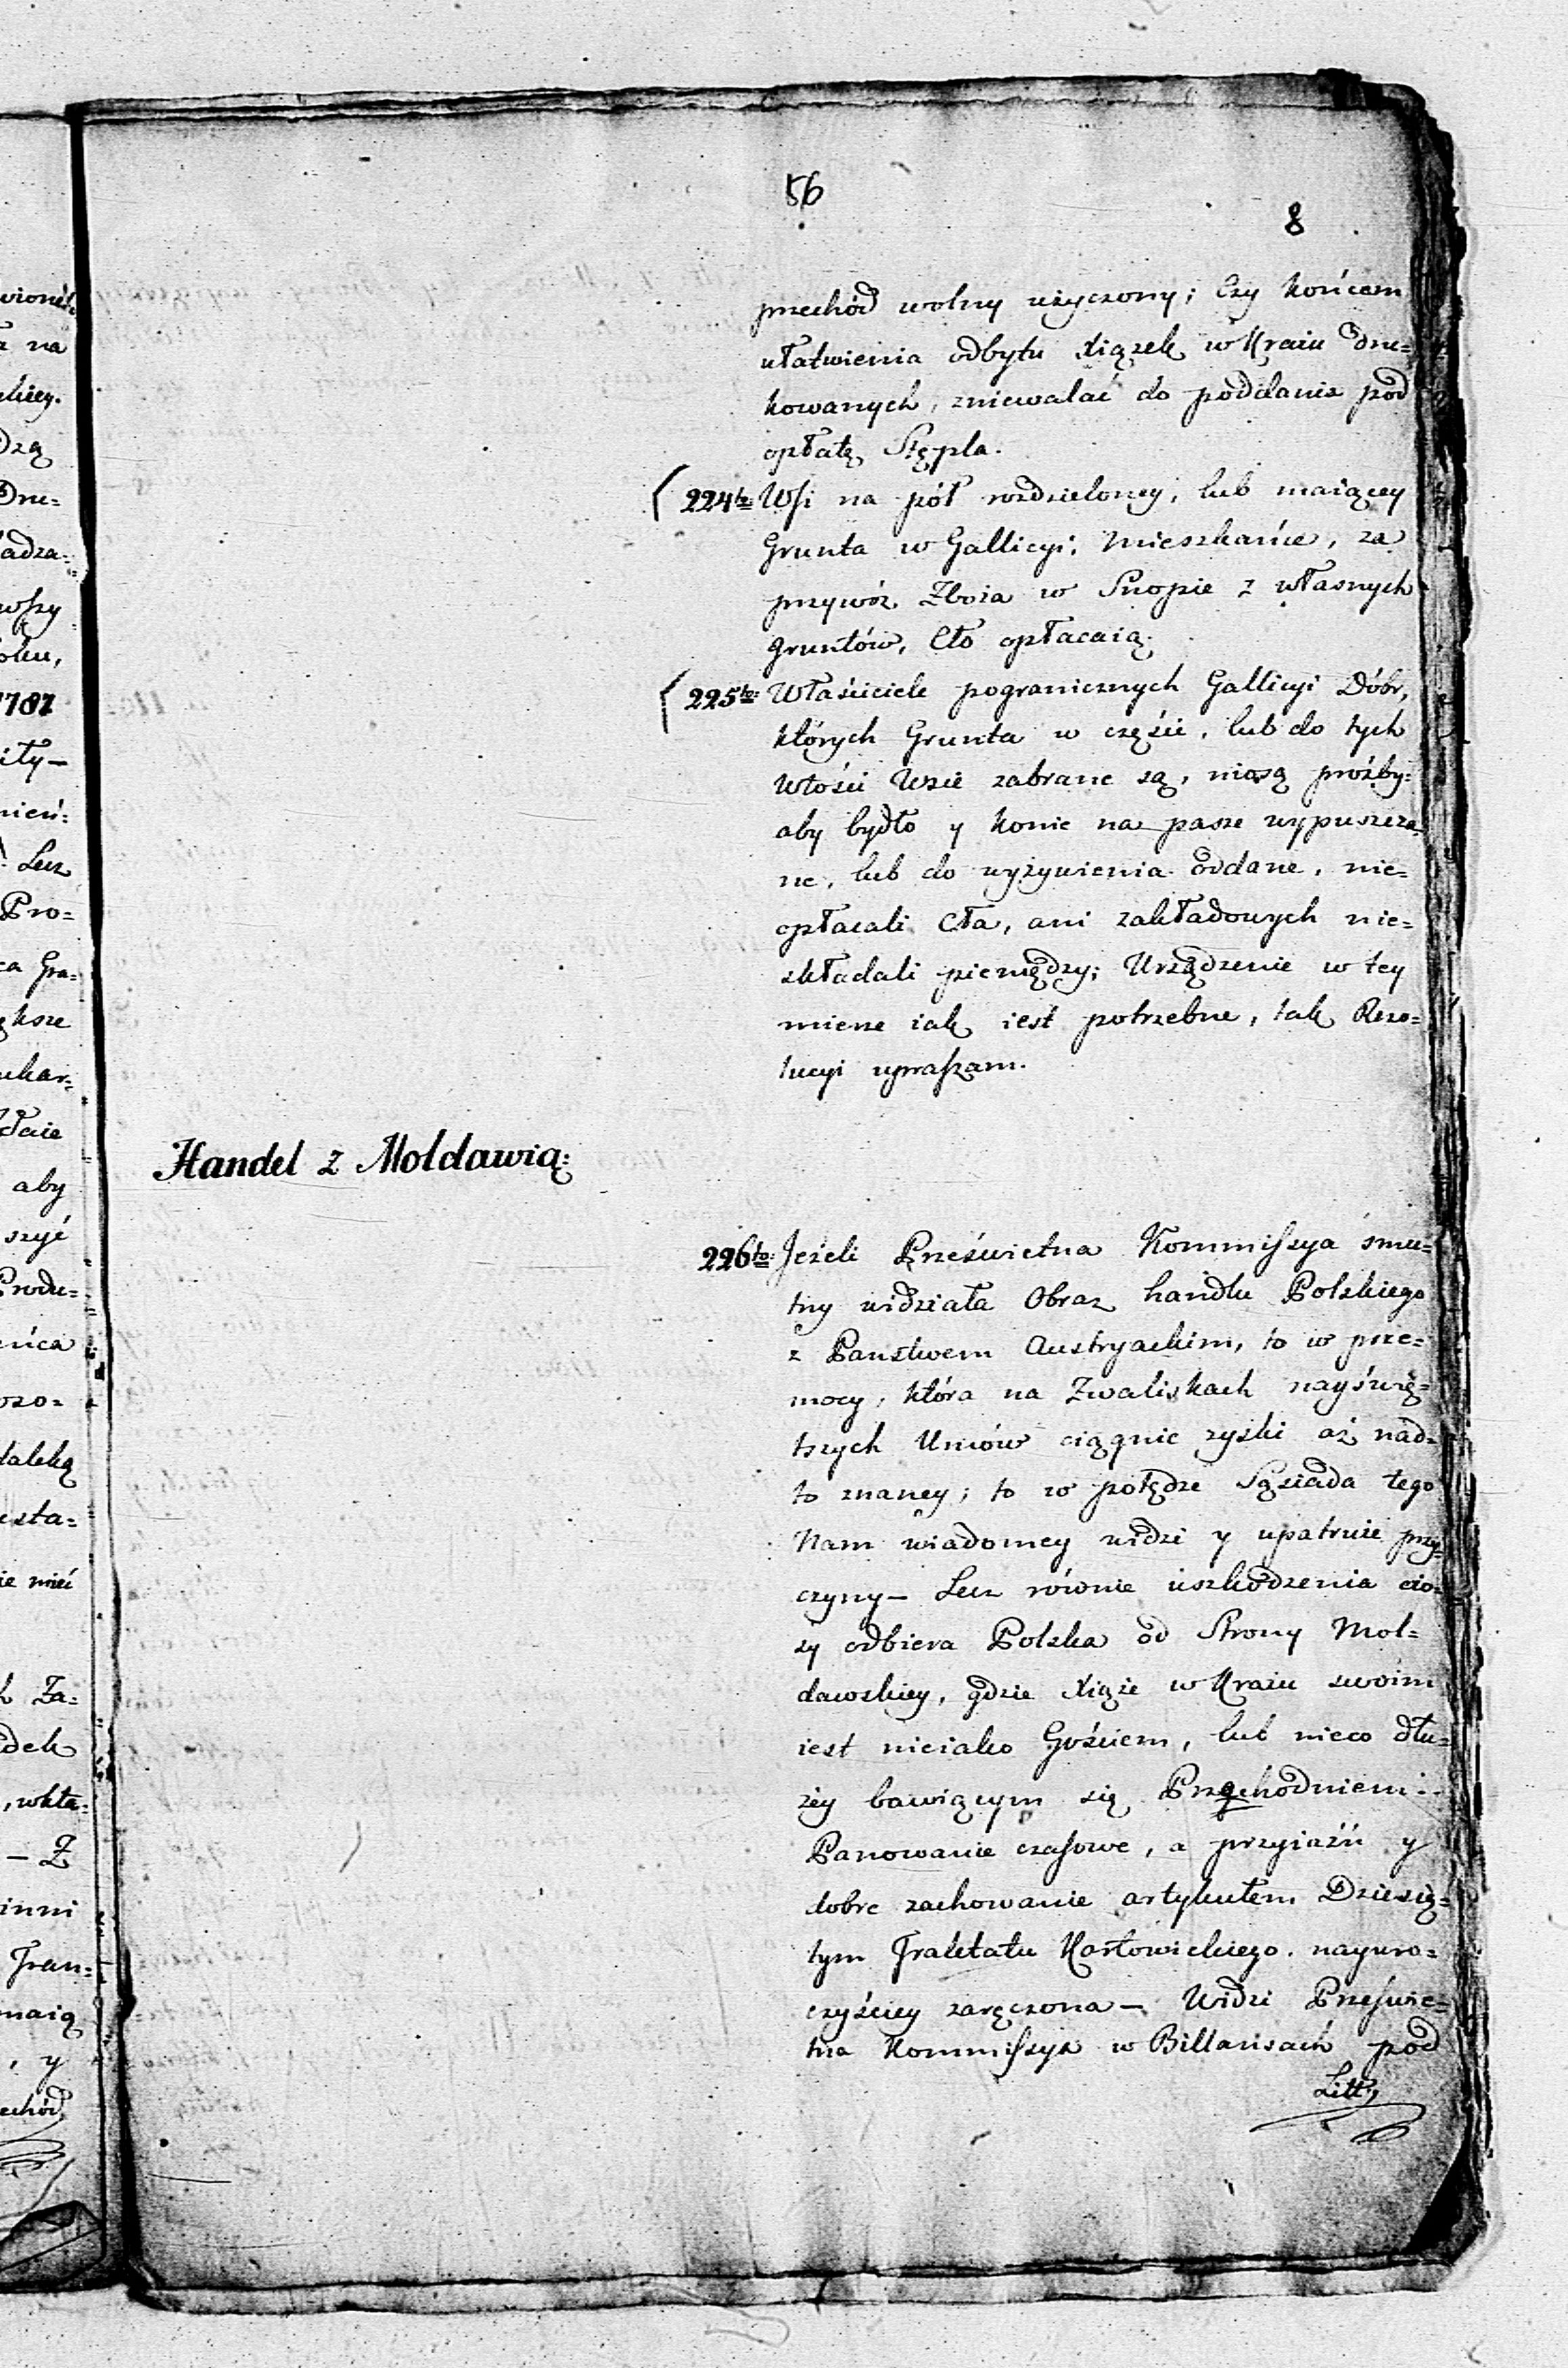 56
8
przechód wolny użyczony; Czy końcem
ułatwienia odbytu Xiązek w Kraiu Dru=
kowanych, zniewalać do poddania pod
opłatę Stępla.
224to: Wsi na pół rozdzieloney, lub maiącey
Grunta w Gallicyi; mieszkańce, za
przywóz Zboża w Snopie z własnych
gruntów, Cło opłacaią.
225to: Właściciele pogranicznych Gallicyi Dóbr,
których Grunta w części, lub do tych
włości Wsie zabrane są, niosą próźby:
aby bydło y konie na pasze wypuszcza
ne, lub do wyżywienia oddane, nie=
opłacali Cła, ani zakładowych nie=
składali pieniędzy; Urządzenie w tey
mierze iak iest potrzebne, tak Rezo=
lucyi upraszam.
Handel z Moldawią:
226to: Jeżeli Prześwietna Kommissya smu=
tny widziała Obraz handlu Polskiego
z Panstwem Austryackim, to w prze=
mocy, która na Zwaliskach nayświę=
tszych Umów ciągnie zyski aż nad=
to znaney; to w potędze Sąsiada tego
Nam wiadomey widzi y upatruie przy=
czyny — Lecz równie uszkodzenia cio=
sy odbiera Polska od Strony Mol=
dawskiey, gdzie Xiąże w Kraiu swoim
iest nieiako Gościem, lub nieco dłu=
żey bawiącym się Przechodniem:
Panowanie czasowe, a przyiaźń y
dobre zachowanie artykułem Dziesią=
tym Traktatu Karłowickiego nayuro=
czyściey zaręczona — Widzi Prześwie=
tna Kommissya w Billansach pod
Litt,
wionéł
na
skiey.
Dzą
Dru=
adza=
wszy
oku,
1787
iły—
nień:
Lecz
Pro=
ca Gra=
ększe
ukar=
daie
aby
szyć
Produ=
ńca
ozo=
daleką
esta=
ie mieć
Za=
dek
, wkła=
— Z
inni
Fran=
maią
, y
echód